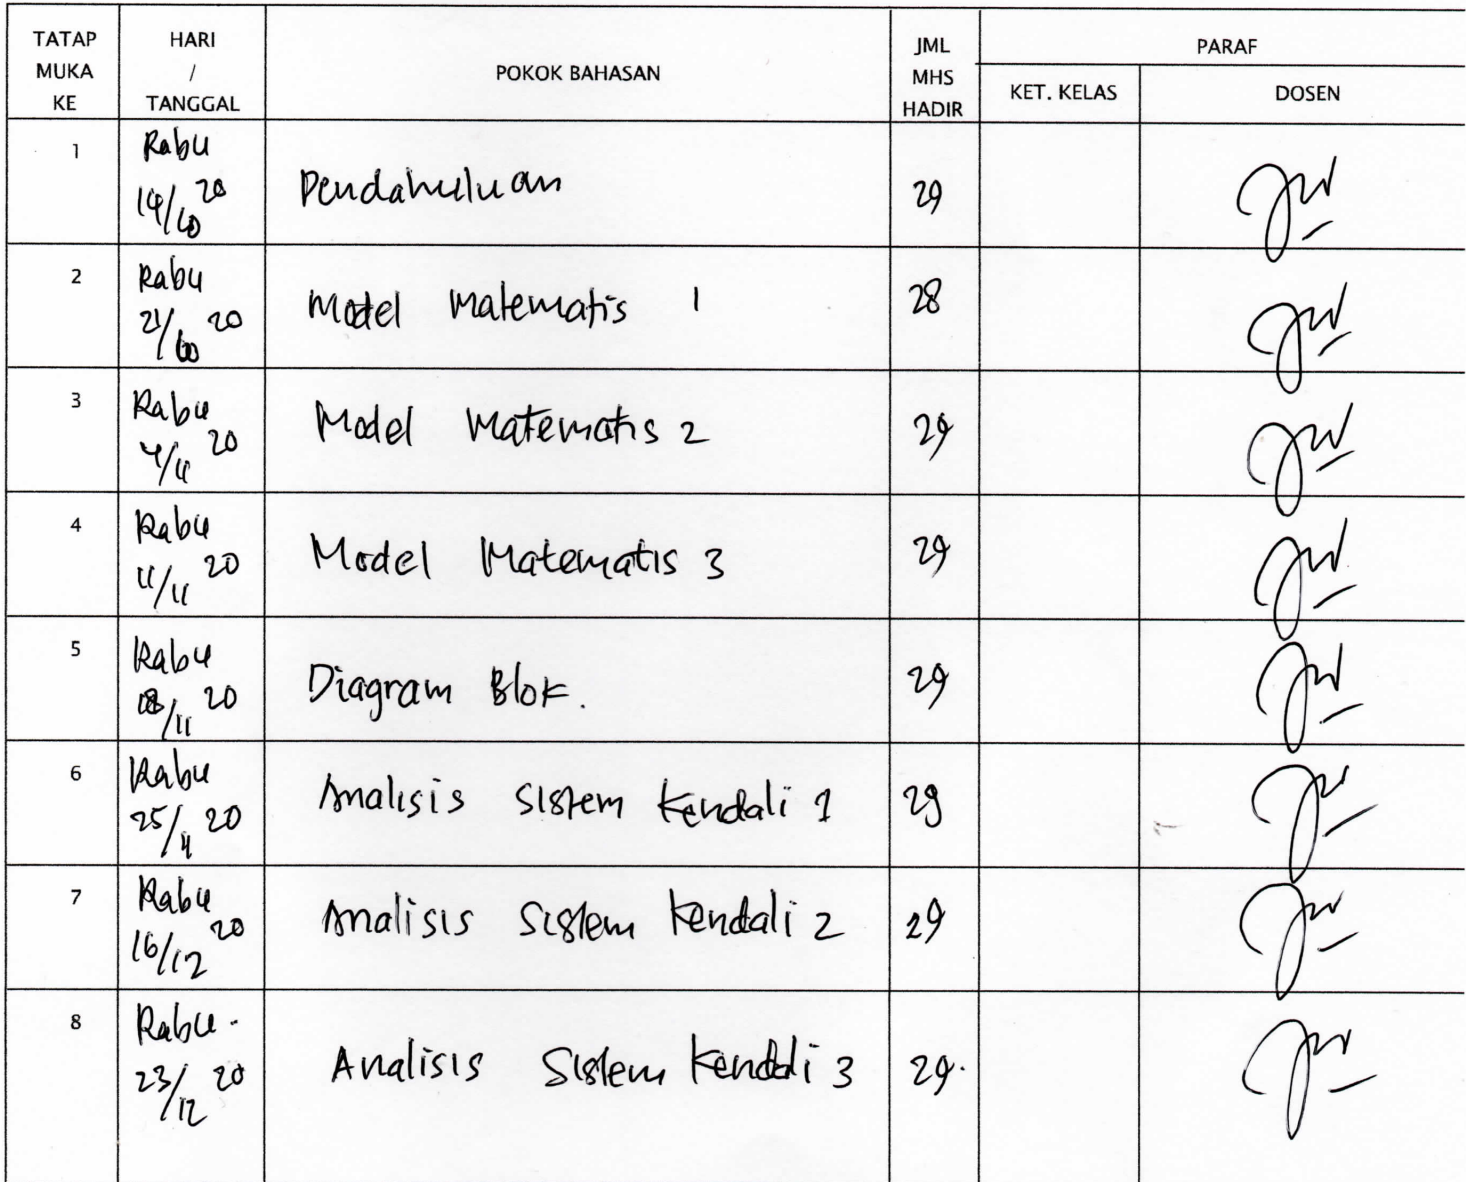 TATAP MUKA KE
HARI / TANGGAL
POKOK BAHASAN
JML MHS HADIR
PARAF
KET. KELAS
DOSEN
1
Rabu
14/10 20
Pendahuluan
29
2
Rabu
21/10 20
Model Matematis 1
28
3
Rabu
4/11 20
Model Matematis 2
29
4
Rabu
11/11 20
Model Matematis 3
29
5
Rabu
18/11 20
Diagram Blok.
29
6
Rabu
25/11 20
Analisis Sistem Kendali 1
29
7
Rabu
16/12 20
Analisis Sistem Kendali 2
29
8
Rabu.
23/12 20
Analisis Sistem Kendali 3
29.